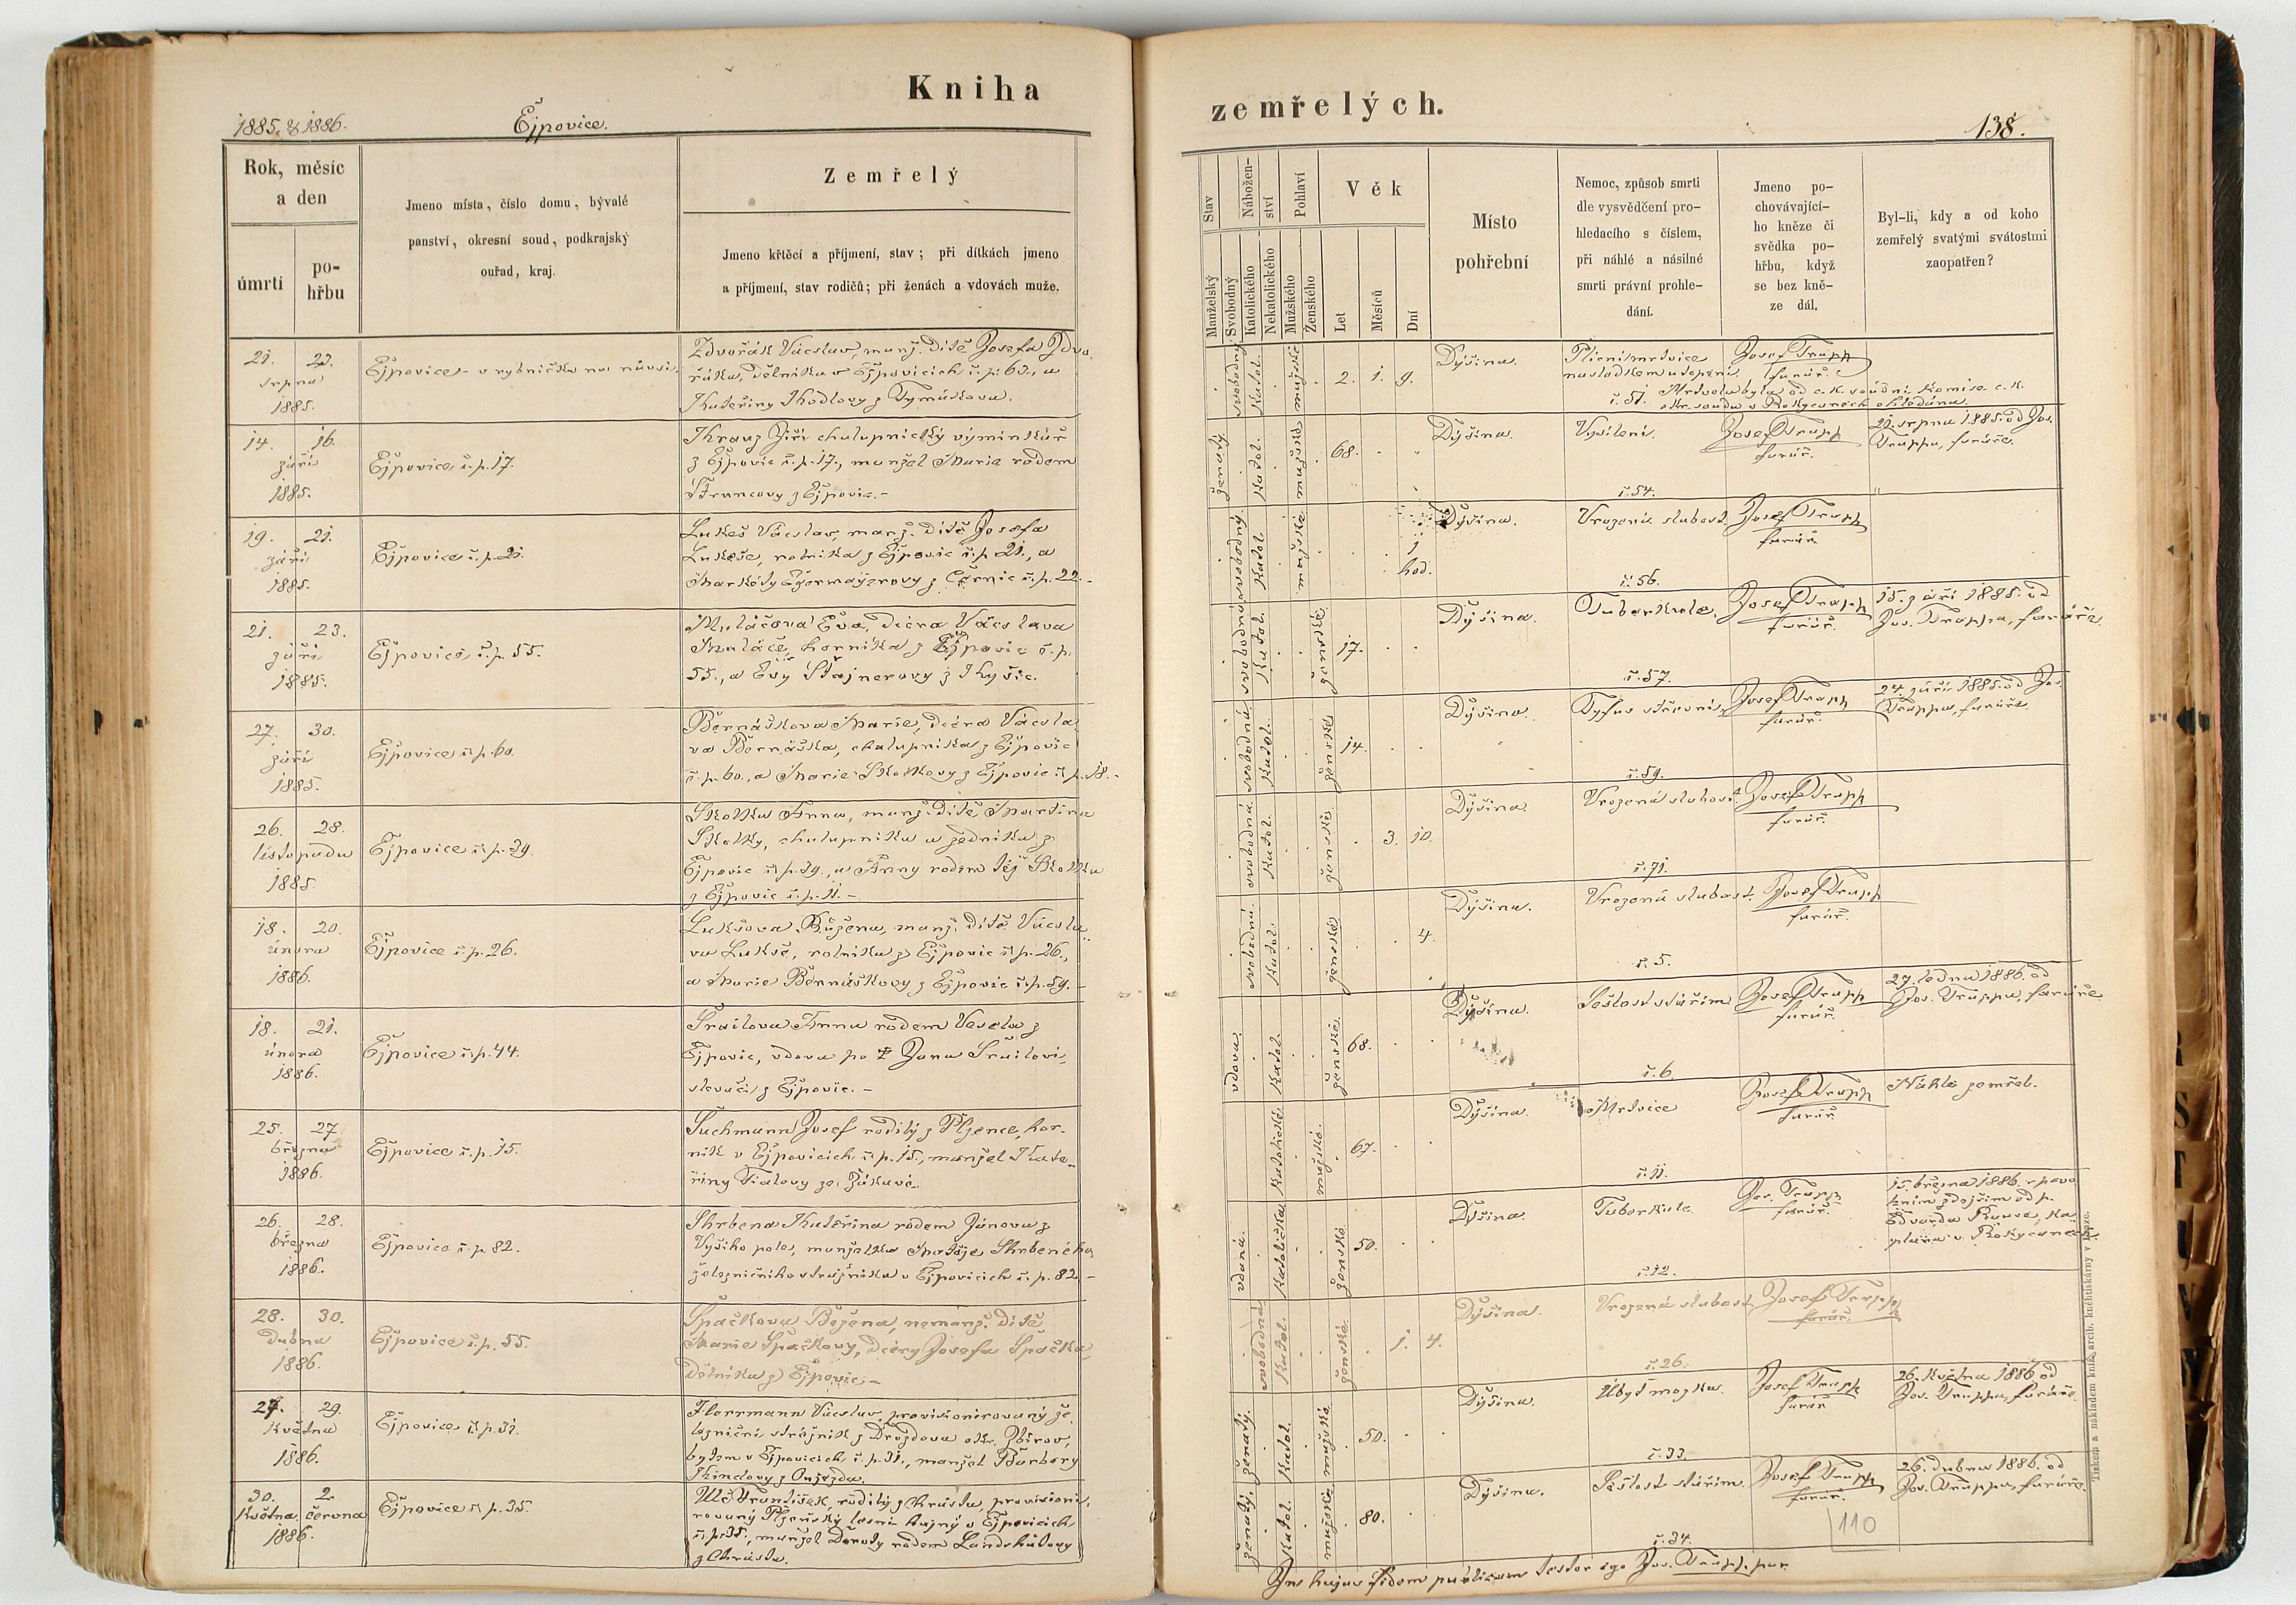 Kniha
1885. & 1886.
Ejpovice.
Rok, měsíc
a den
úmrtí
po-
hřbu
Jmeno místa, číslo domu, bývalé
panství, okresní soud, podkrajský
ouřad, kraj.
Zemřelý
Jmeno křtěcí a příjmení, stav; při dítkách jmeno
a příjmení, stav rodičů; při ženách a vdovách muže.
21. 23.
srpna
1885.
Ejpovice - v rybníčku na návsi.
Zdvořák Václav, manž. dítě Josefa Zdvo-
řáka, dělníka v Ejpovicích č. p. 63., a
Kateřiny
14. 16.
září
1885.
Ejpovice č. p. 17.
Kranz Jiří chalupnický výminkář
z Ejpovic č. p. 17., manžel Marie rodem
z Ejpovic. -
19. 21.
září
1885.
Ejpovice č. p. 21.
Lukeš Václav, manž. dítě Josefa
Lukeše, rolníka z Ejpovic č. p. 21., a
Markéty z č. p. 22. -
21. 23.
září
1885.
Ejpovice č. p. 55.
Muláčova Eva, dcera Václava
Muláče, horníka z Ejpovic č. p.
55., a Evy Štajnerovy z Kyšic.
27. 30.
září
1885.
Ejpovice č. p. 60.
Bernášková Marie, dcera Václa-
va Bernáška, chalupníka z Ejpovic
č. p. 60., a Marie Skolkovy z Ejpovic č. p. 18. -
26. 28.
listopadu
1885.
Ejpovice č. p. 39.
Skolka Anna, manž. dítě Martina
Skolky, chalupníka a zedníka z
Ejpovic č. p. 39., a Anny rodem též Skolka
z Ejpovic č. p. 11. -
18. 20.
února
1886.
Ejpovice č. p. 26.
Lukšova Růžena, manž. dítě Václa-
va Lukše, rolníka z Ejpovic č. p. 26.,
a Marie Bernáškovy z Ejpovic č. p. 59. -
18. 21.
února
1886.
Ejpovice č. p. 44.
Šrailova Anna rodem Vesela z
Ejpovic, vdova po † Janu Šrailovi,
slevači z Ejpovic. -
25. 27.
března
1886.
Ejpovice č. p. 15.
Suchmann Josef rodilý z Plzence, hor-
ník v Ejpovicích č. p. 15., manžel Kate-
řiny Fialovy ze Žákavé.
26. 28.
března
1886.
Ejpovice č. p. 82.
Skrbena Kateřina rodem Janova z
Vyšího pole, manželka Matěje Skrbeného
železničního strážníka v Ejpovicích č. p. 82. -
28. 30.
dubna
1886.
Ejpovice č. p. 55.
Špačkova Božena, nemanž. dítě
Marie Špačkovy, dcery Josefa Špačka,
dělníka z Ejpovic. -
27. 29.
května
1886.
Ejpovice č. p. 31.
Václav, provisionirovaný že-
lezniční strážník z Drozdova okr. Zbirov,
bytem v Ejpovicích č. p. 31., manžel Barbory
z Oujezda.
30. 2.
května června
1886.
Ejpovice č. p. 35.
František, rodilý z Chrásta, provisioni-
rovaný Plzeňský lesní hajný v Ejpovicích
č. p. 35., manžel Doroty rodem
z Chrásta.
zemřelých.
138.
Stav
Nábožen-
ství
Pohlaví
Věk
Manželský
Svobodný
Katolického
Nekatolického
Mužského
Ženského
Let
Měsíců
Dní
Místo
pohřební
Nemoc, způsob smrti
dle vysvědčení pro-
hledacího s číslem,
při náhlé a násilné
smrti právní prohle-
dání.
Jmeno po-
chovávající-
ho kněze či
svědka po-
hřbu, když
se bez kně-
ze dál.
Byl-li, kdy a od koho
zemřelý svatými svátostmi
zaopatřen?
svobodný Katol. mužské 2. 1. 9.
Dýšina.
Plicní mrtvice
následkem utopení.
č. 51.
Josef Trapp
farář.
Mrtvola byla od c. k. soudní komise c. k.
okr. soudu v Rokycanech ohledána.
ženatý Katol. mužské 68.
Dýšina.
Vysílení.
č. 54.
Josef Trapp
farář.
21. srpna 1885. od Jos.
Trappa, faráře.
svobodný Katol. mužské 1 hod.
Dýšina.
Vrozená slabost.
č. 56.
Josef Trapp
farář.
svobodná Katol. ženské 17.
Dýšina.
Tuberkule.
č. 57.
Josef Trapp
farář.
15. září 1885. od
Jos. Trappa, faráře
svobodná Katol. ženské 14.
Dýšina.
Tyfus střevní.
č. 59.
Josef Trapp
farář.
24. září 1885. od Jos.
Trappa, faráře.
svobodná Katol. ženské 3. 10.
Dýšina.
Vrozená slabost.
č. 71.
Josef Trapp
farář.
svobodná Katol. ženské 4.
Dýšina.
Vrozená slabost.
č. 5.
Josef Trapp
farář.
vdova Katol. ženské 68.
Dýšina.
Sešlost stářím.
č. 6.
Josef Trapp
farář.
27. ledna 1886. od
Jos. Trappa, faráře
Katolické mužské 67.
Dýšina.
Mrtvice
č. 11.
Josef Trapp
farář
Náhle zemřel.
vdaná. Katolička ženské 50.
Dýšina.
Tuberkule
č. 12.
Jos. Trapp
farář.
15. března 1886.
od p.
Edvarda ka-
plana v Rokycanech
svobodná Katol. ženské 1. 4.
Dýšina.
Vrozená slabost
č. 26.
Josef Trapp
farář.
ženatý. Katol. mužské 50.
Dýšina.
Úbyť mozku.
č. 33.
Josef Trapp
farář
26. května 1886. od
Jos. Trappa, faráře.
ženatý. Katol. mužské 80.
Dýšina.
Sešlost stářím.
č. 34.
Josef Trapp
farář.
26. dubna 1886. od
Jos. Trappa, faráře.
110
In hujus fidem publicam testor ego Jos. Trapp, par.
Tiskem a nákladem kníž. arcib. kněhtiskárny v Praze.